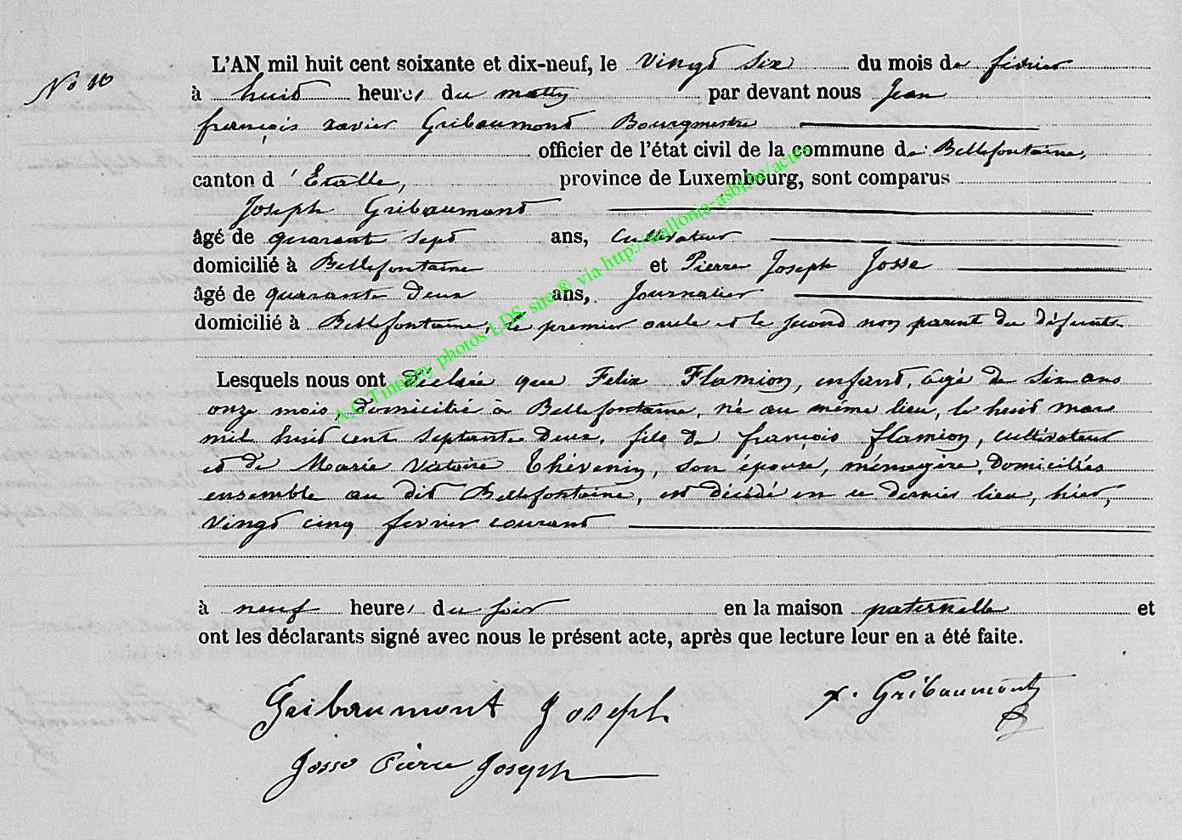 No 16
L'AN mil huit cent soixante et dix-neuf, le vingt six du mois de février
à huit heures du matin par devant nous Jean
françois xavier Gribaumont Bourgmestre
officier de l'état civil de la commune de Bellefontaine,
canton d'Etalle, province de Luxembourg, sont comparus
Joseph Gribaumont
âgé de quarant sept ans, cultivateur
domicilié à Bellefontaine et Pierre Joseph Josse
âgé de quarante deux ans, Journalier
domicilié à Bellefontaine, le premier oncle et le second non parent du défunt
Lesquels nous ont déclaré que Felix Flamion, enfant, âgé de six ans
onze mois, domicilié à Bellefontaine, né au même lieu, le huit mars
mil huit cent septante deux, fils de françois Flamion, cultivateur
et de Marie Victoire Thévenin, son épouse, ménagère, domiciliés
ensemble au dit Bellefontaine, est décédé en ce dernier lieu, hier,
vingt cinq fevrier courant
à neuf heures du soir en la maison paternelle et
ont les déclarants signé avec nous le présent acte, après que lecture leur en a été faite.
Gribaumont Joseph x. Gribaumont
Josse Pierre Joseph
photos LDS site® via http://wallonia-asbl.be/actes